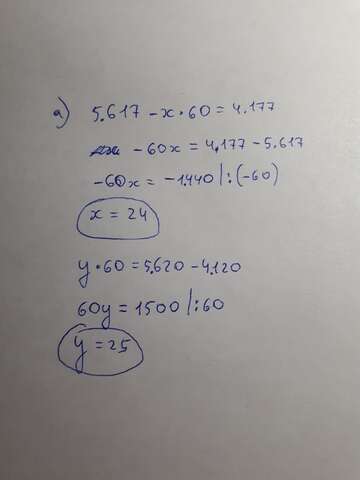 a) 5.617 - x • 60 = 4.177
- 60x = 4.177 - 5.617
- 60x = - 1.440 | : (-60)
x = 24
y • 60 = 5.620 - 4.120
60y = 1500 | : 60
y = 25